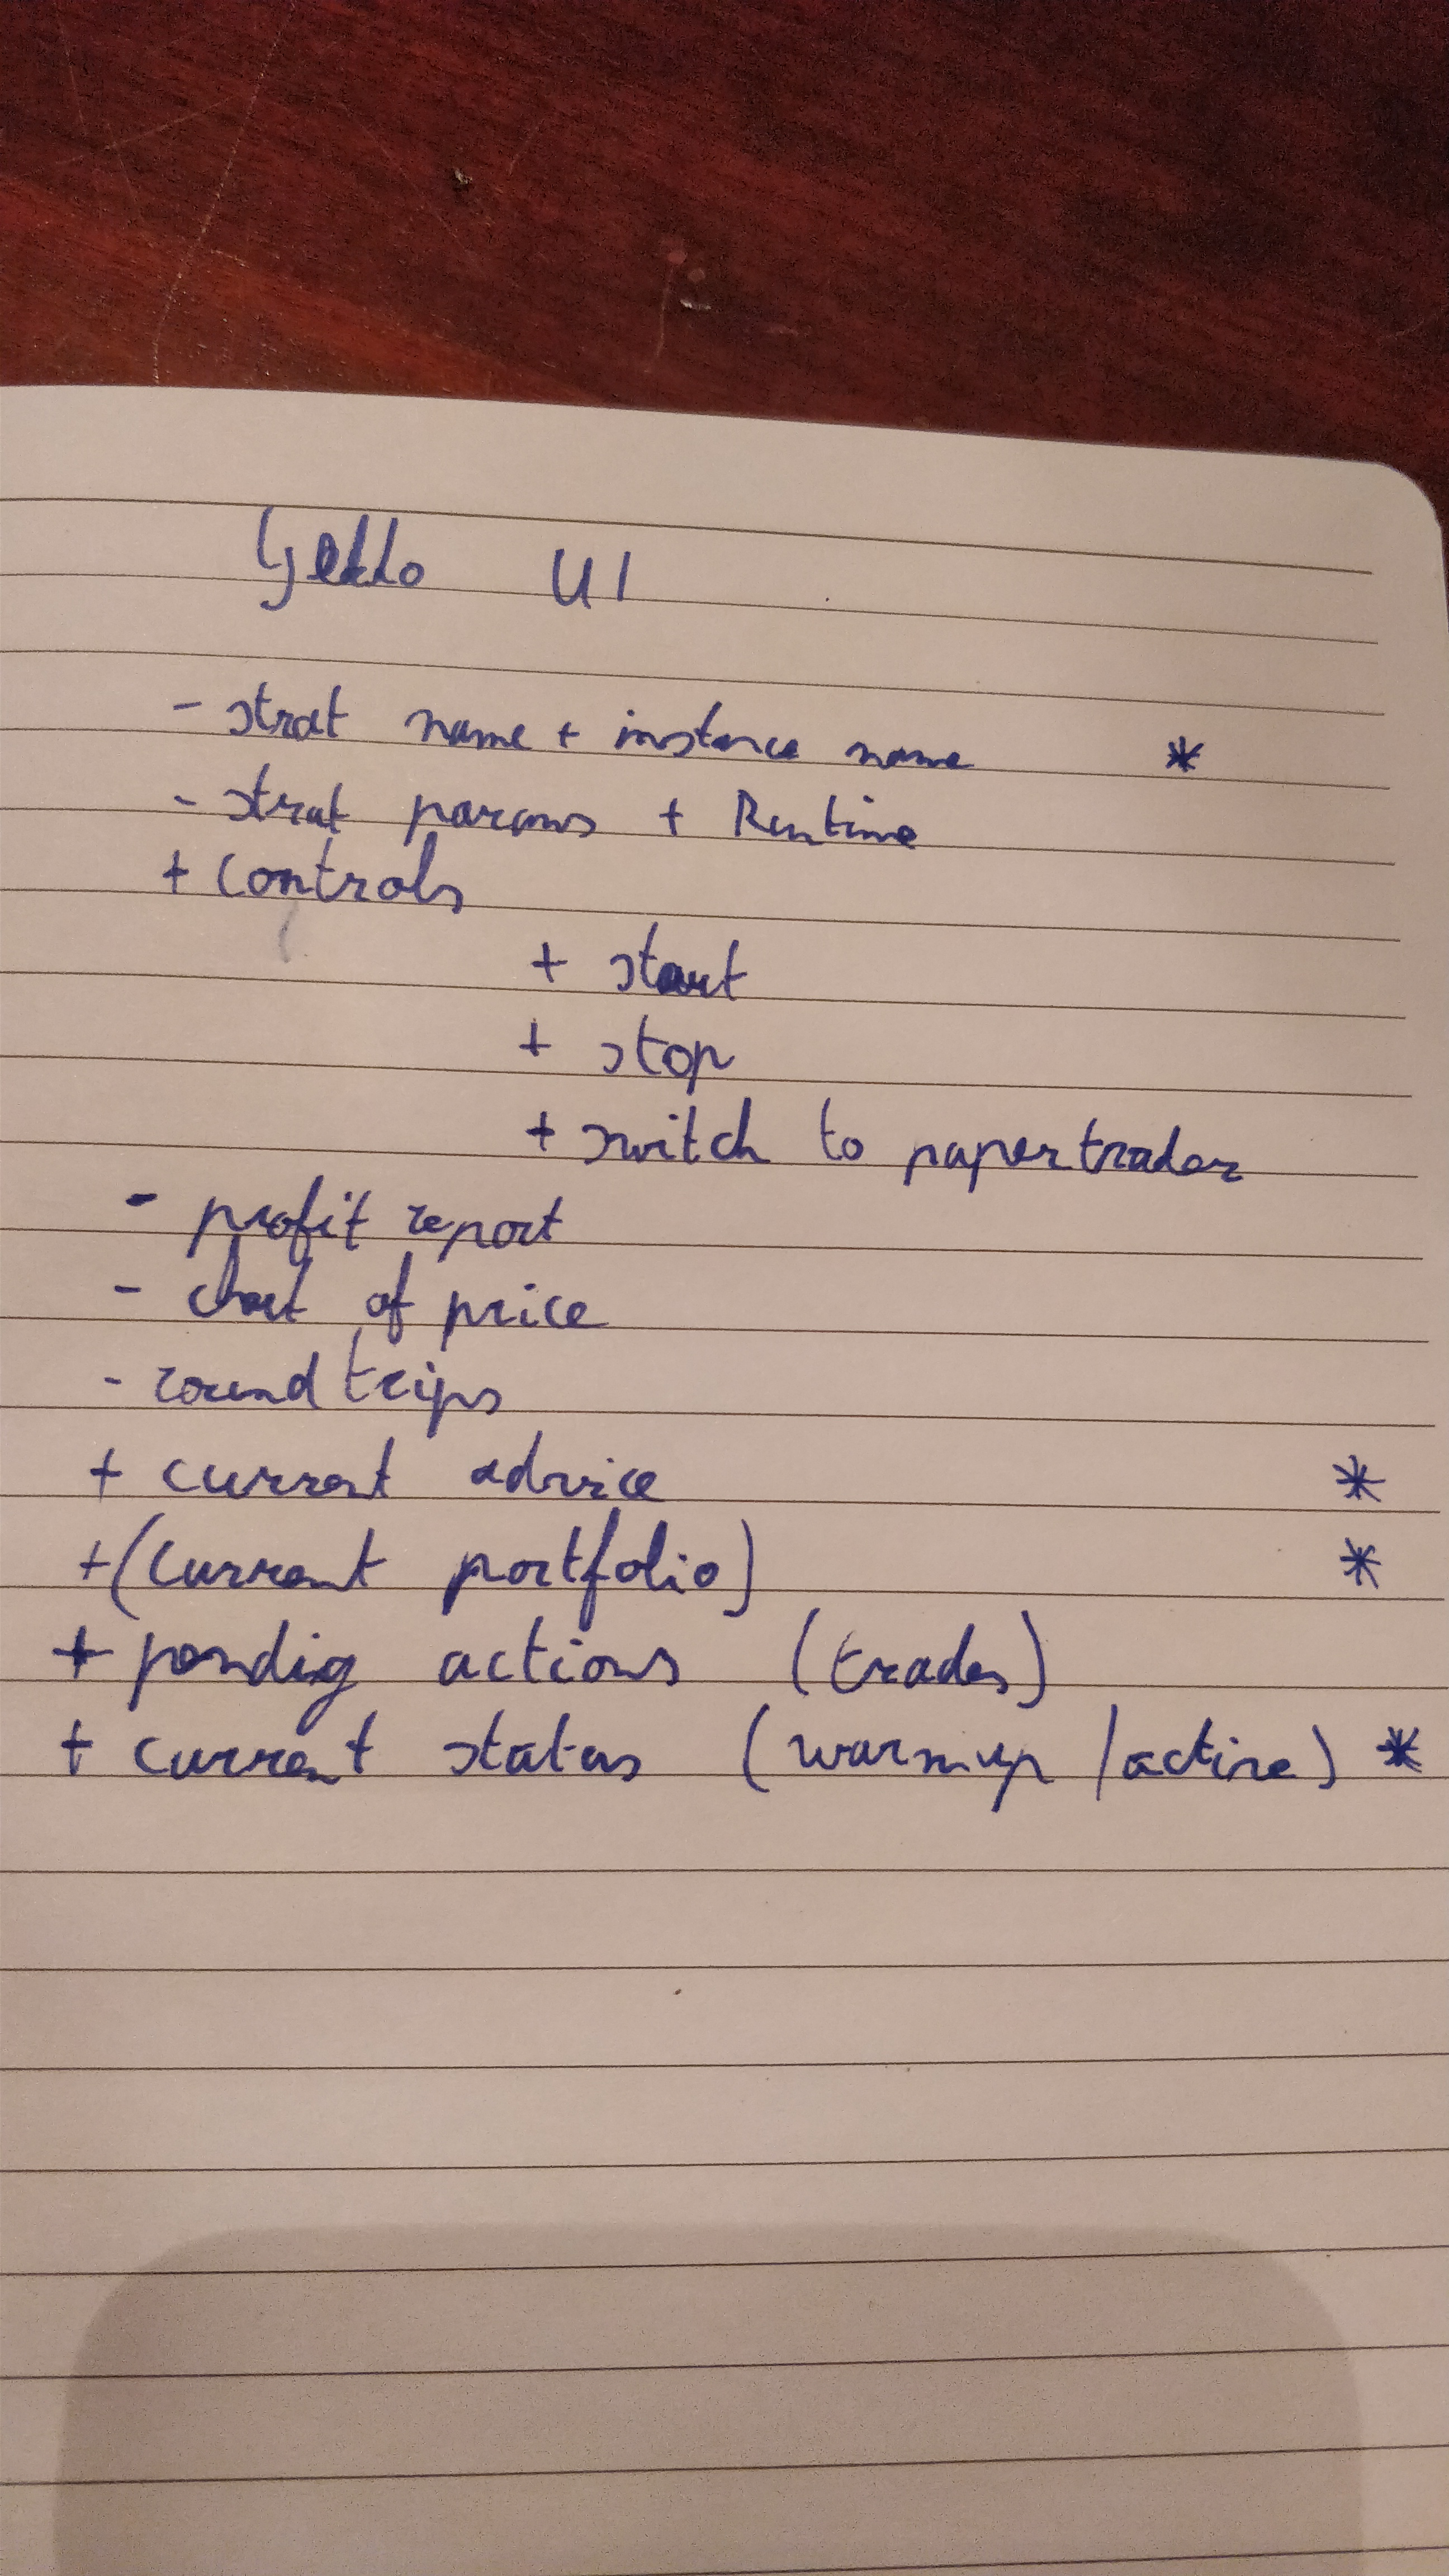 Gekko UI
- strat name + instance name *
- strat params + Runtime
+ controls
+ start
+ stop
+ switch to papertrader
- profit report
- chart of price
- roundtrips
+ current advice *
+ (current portfolio) *
+ pendig actions (trades)
+ current status (warmup / active) *